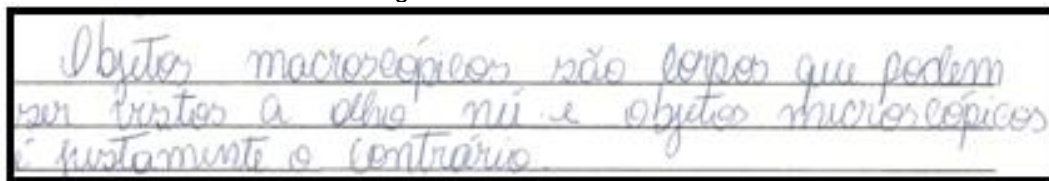 Objetos macroscópicos são corpos que podem
ser vistos a olho nú e objetos microscópicos
é justamente o contrário.